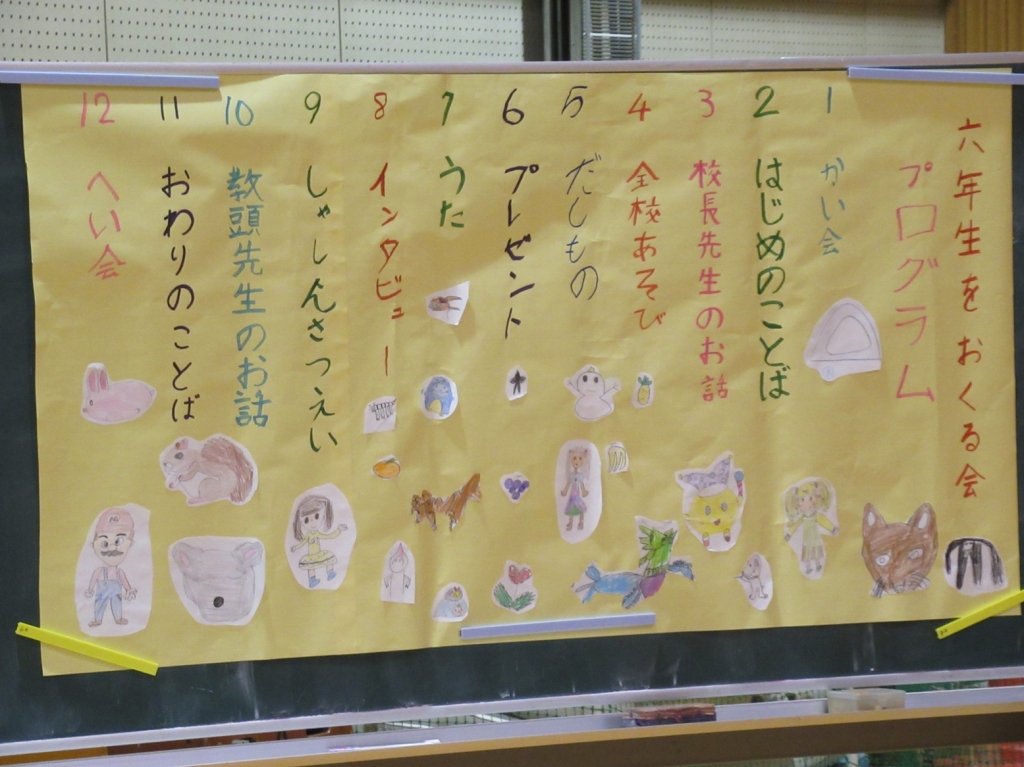 六年生をおくる会
プログラム
1 かい会
2 はじめのことば
3 校長先生のお話
4 全校あそび
5 だしもの
6 プレゼント
7 うた
8 インタビュー
9 しゃしんさつえい
10 教頭先生のお話
11 おわりのことば
12 へい会